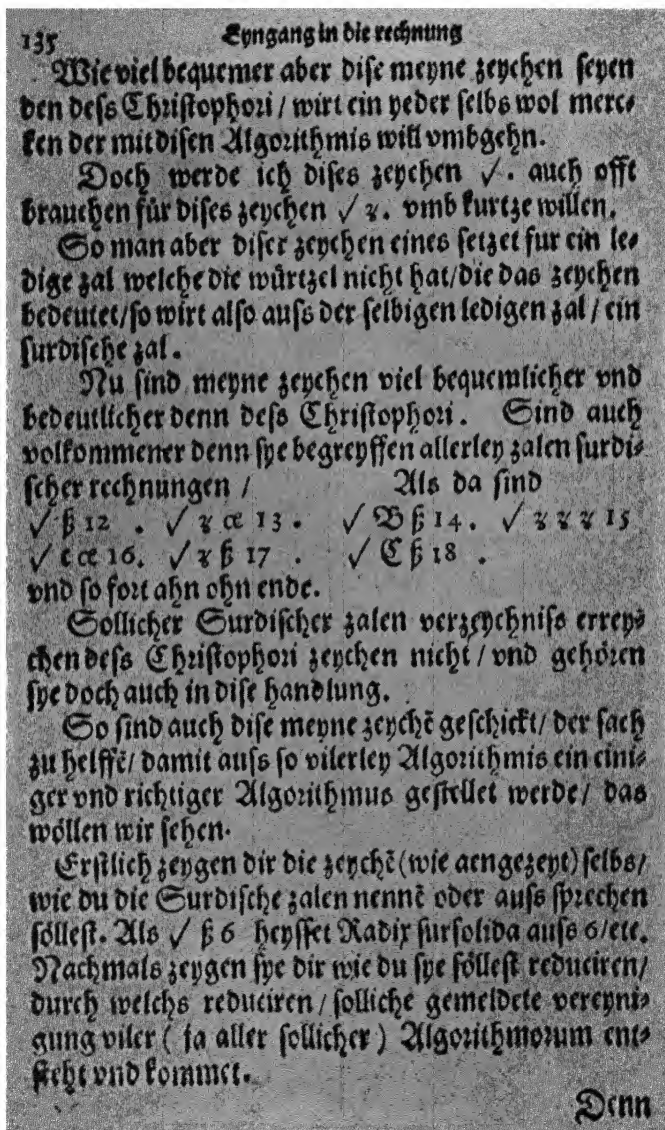 135 Eyngang in die rechnung
Wie viel bequemer aber dise meyne zeychen seyen
den dess Christophori / wirt ein yeder selbs wol merc⸗
ken der mit disen Algorithmis will vmbgehn.
Doch werde ich dises zeychen √. auch offt
brauchen für dises zeychen √ ʒ. vmb kurtze willen.
So man aber diser zeychen eines setzet fur ein le⸗
dige zal welche die würtzel nicht hat/die das zeychen
bedeutet/so wirt also auss der selbigen ledigen zal / ein
surdische zal.
Nu sind meyne zeychen viel bequemlicher vnd
bedeutlicher denn dess Christophori. Sind auch
volkommener denn sye begreyffen allerley zalen surdi⸗
scher rechnungen / Als da sind
√ ß 12 . √ ʒ ce 13 . √ B ß 14. √ ʒ ʒ ʒ 15
√ c ce 16. √ ʒ ß 17 . √ C ß 18 .
vnd so fort ahn ohn ende.
Sollicher Surdischer zalen verzeychniss erreys
chen dess Christophori zeychen nicht / vnd gehören
sye doch auch in dise handlung.
So sind auch dise meyne zeychē geschickt/ der sach
zu helffē/ damit auss so vilerley Algorithmis ein eini⸗
ger vnd richtiger Algorithmus gestellet werde/ das
wöllen wir sehen.
Erstlich zeygen dir die zeychē (wie aengezeyt) selbs/
wie du die Surdische zalen nennē oder auss sprechen
söllest. Als √ ß 6 heysset Radix sursolida auss 6/etc.
Nachmals zeygen sye dir wie du sye söllest reduciren/
durch welchs reduciren / solliche gemeldete vereyni⸗
gung viler ( ja aller sollicher ) Algorithmorum ent⸗
steht vnd kommet.
Denn